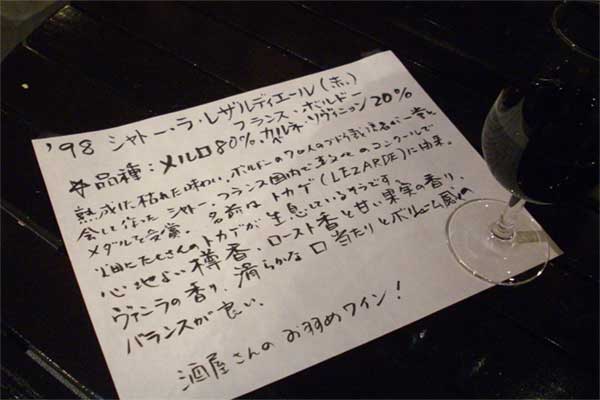 '98 シャトー・ラ・レザルディエール(赤)
フランス・ボルドー
品種:メルロ80%、カベルネ・ソヴィニヨン20%
熟成した枯れた味わい。ボルドーの
会して作ったシャトー。フランス国内でまるでのコンクールで
メダルを受賞。名前はトカゲ(LEZARDE)に由来。
畑にたくさんのトカゲが生息しているそうです。
心地よい樽香、ロースト香と甘い果実の香り、
ヴァニラの香り、滑らかな口当たりとボリューム感の
バランスが良い。
酒屋さんのおすすめワイン!